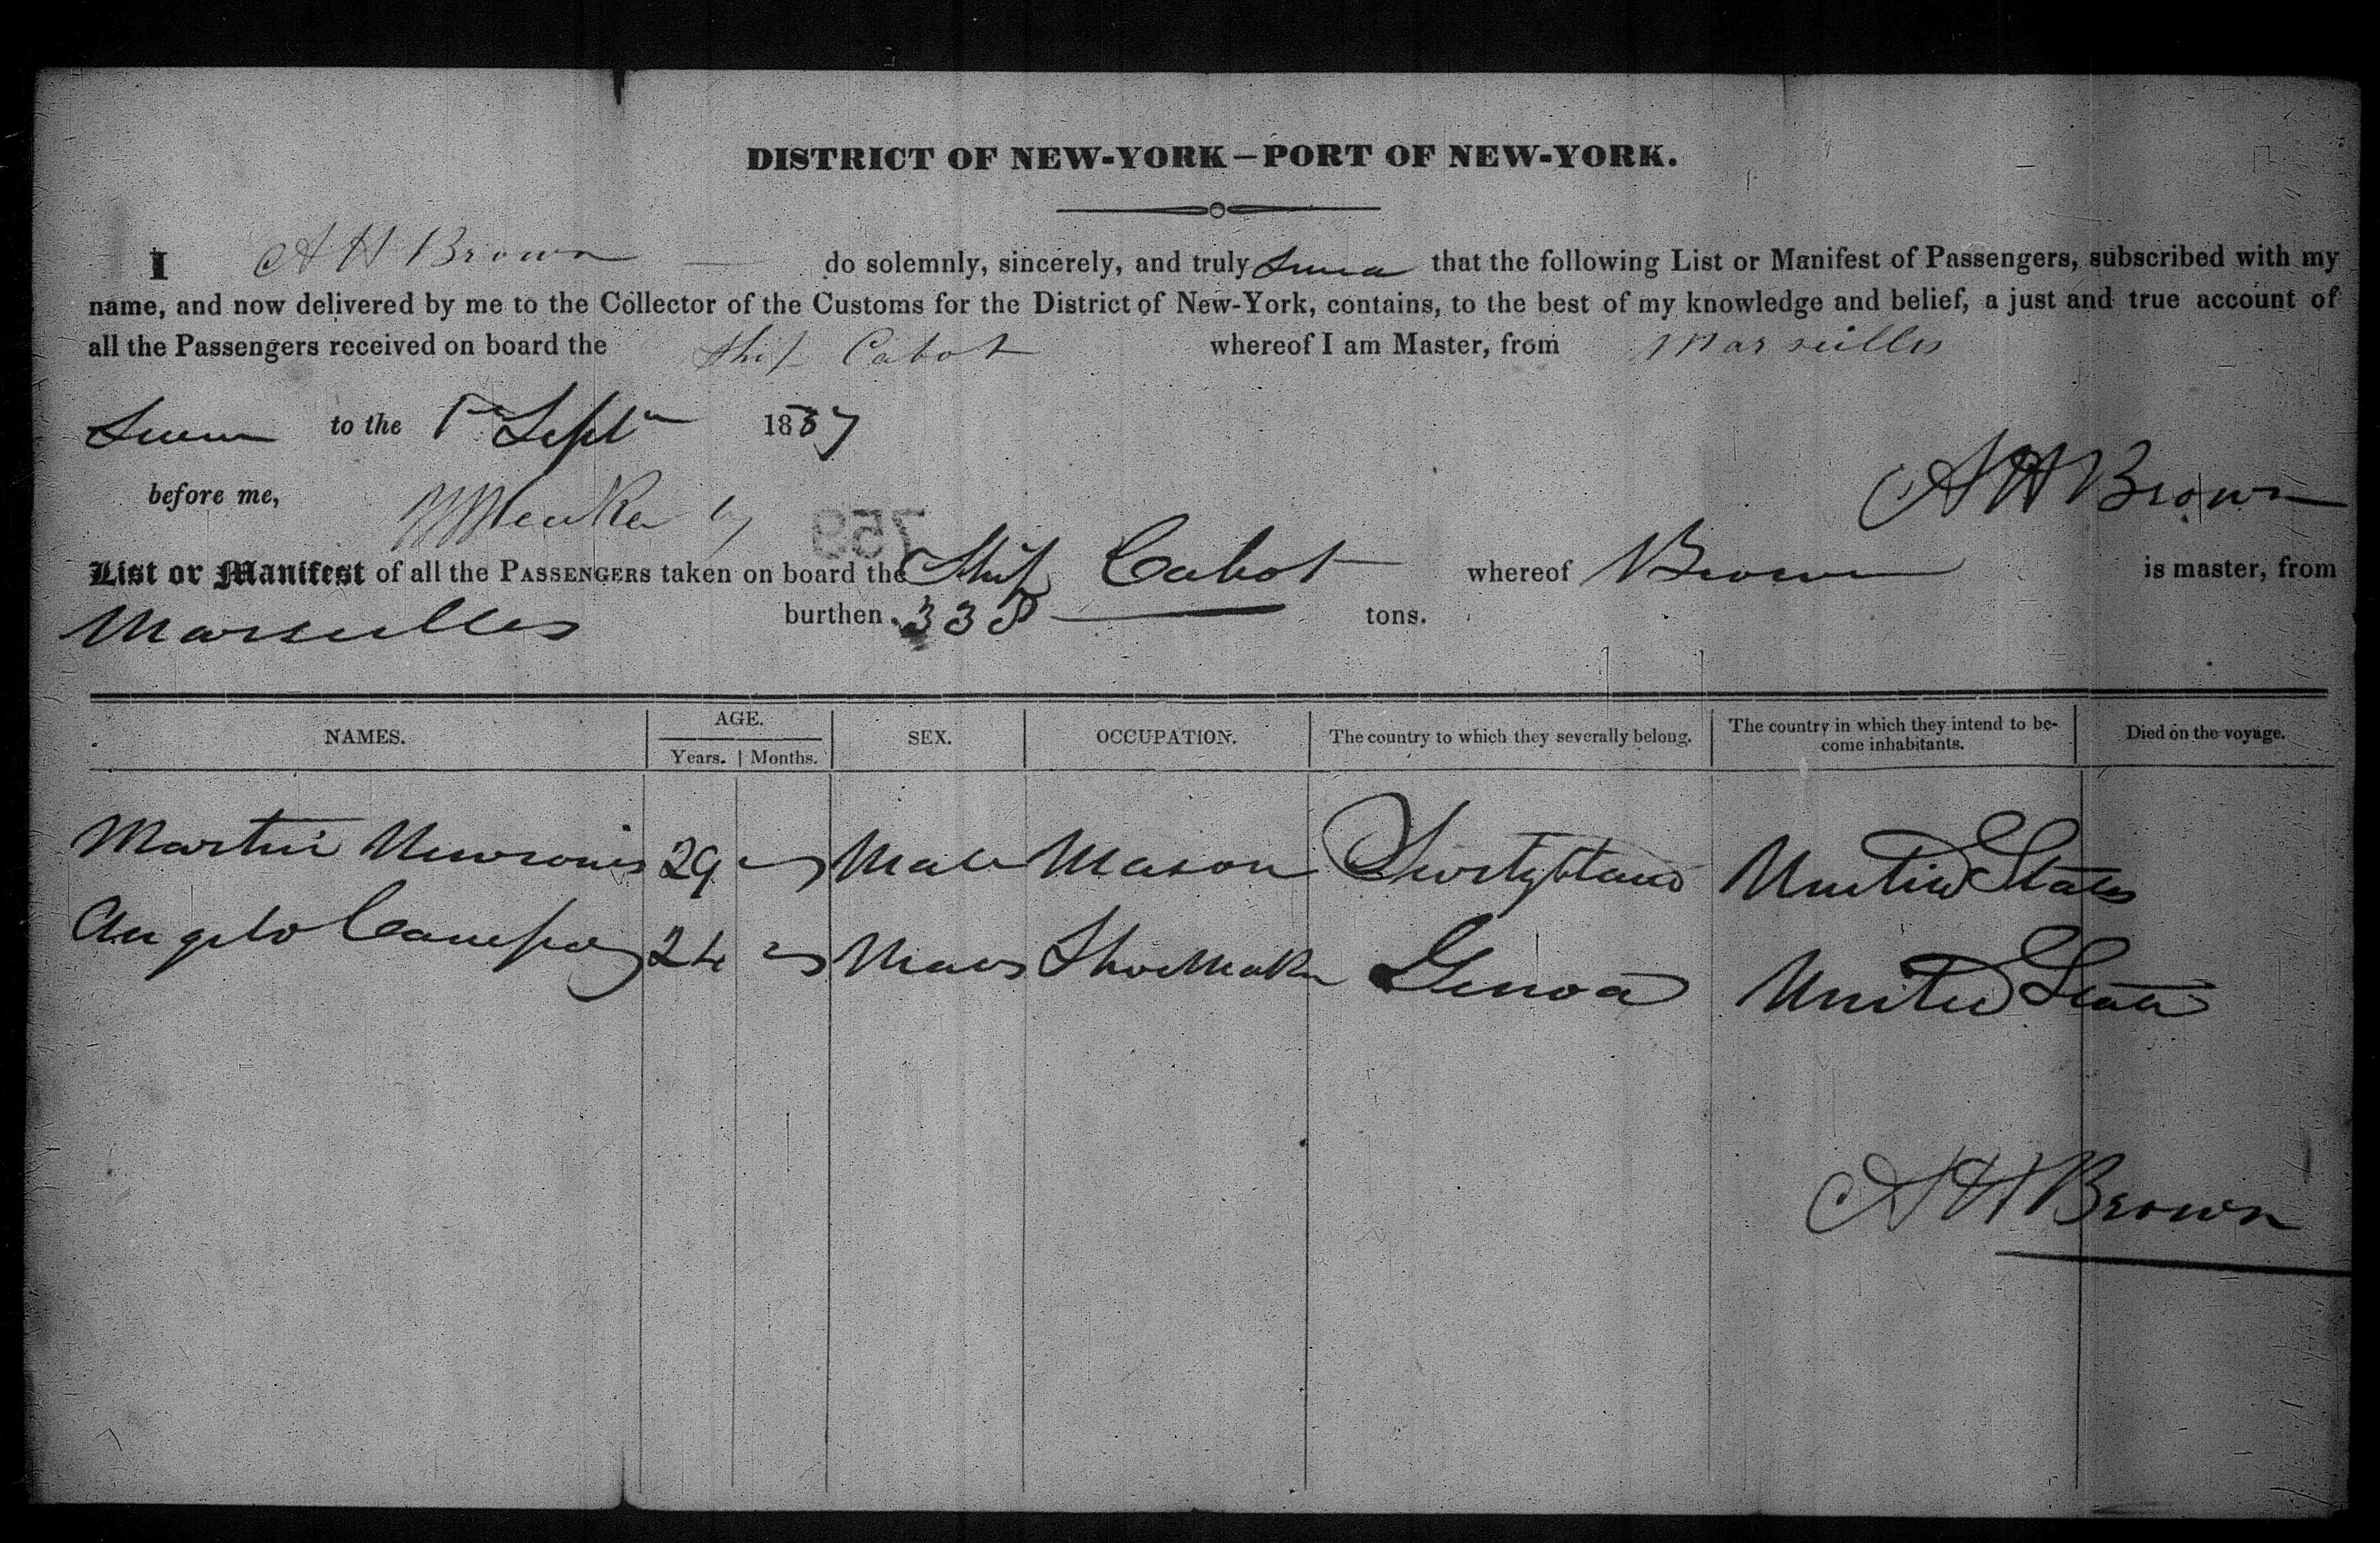 DISTRICT OF NEW-YORK—PORT OF NEW-YORK.
I A H Brown — do solemnly, sincerely, and truly that the following List or Manifest of Passengers, subscribed with my
name, and now delivered by me to the Collector of the Customs for the District of New-York, contains, to the best of my knowledge and belief, a just and true account of
all the Passengers received on board the Ship Cabot whereof I am Master, from Marseilles
to the 1 Sept 1837
A H Brown
before me,
759
List or Manifest of all the PASSENGERS taken on board the Ship Cabot whereof Brown is master, from
Marseilles burthen 338 tons.
NAMES. AGE. SEX. OCCUPATION. The country to which they severally belong. The country in which they intend to be-
come inhabitants. Died on the voyage.
Years. Months.
Martin 29 Male Mason United States
Angelo 24 Shoemaker Genoa United States
A H Brown